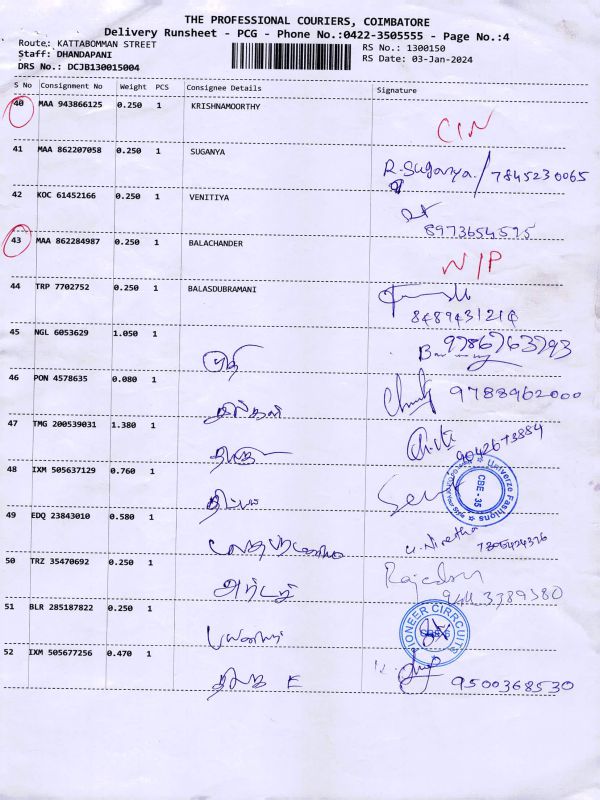 THE PROFESSIONAL COURIERS, COIMBATORE
Delivery Runsheet - PCG - Phone No.:0422-3505555 - Page No.:4
Route: KATTABOMMAN STREET
Staff: DHANDAPANI
DRS No.: DCJB130015004
RS No.: 1300150
RS Date: 03-Jan-2024
S No Consignment No Weight PCS Consignee Details Signature
40 MAA 943866125 0.250 1 KRISHNAMOORTHY
CIN
41 MAA 862207058 0.250 1 SUGANYA
R.Suganya / 7845230065
42 KOC 61452166 0.250 1 VENITIYA
8973654595
43 MAA 862284987 0.250 1 BALACHANDER
N/P
44 TRP 7702752 0.250 1 BALASDUBRAMANI
8489431214
45 NGL 6053629 1.050 1
9786763793
46 PON 4578635 0.080 1
9788962000
47 TMG 200539031 1.380 1
9042673884
48 IXM 505637129 0.760 1
Univerze Fashions
CBE - 35
49 EDQ 23843010 0.580 1
U. Nivetha
50 TRZ 35470692 0.250 1
51 BLR 285187822 0.250 1
PIONEER CIRRCUITS
52 IXM 505677256 0.470 1
9500368530